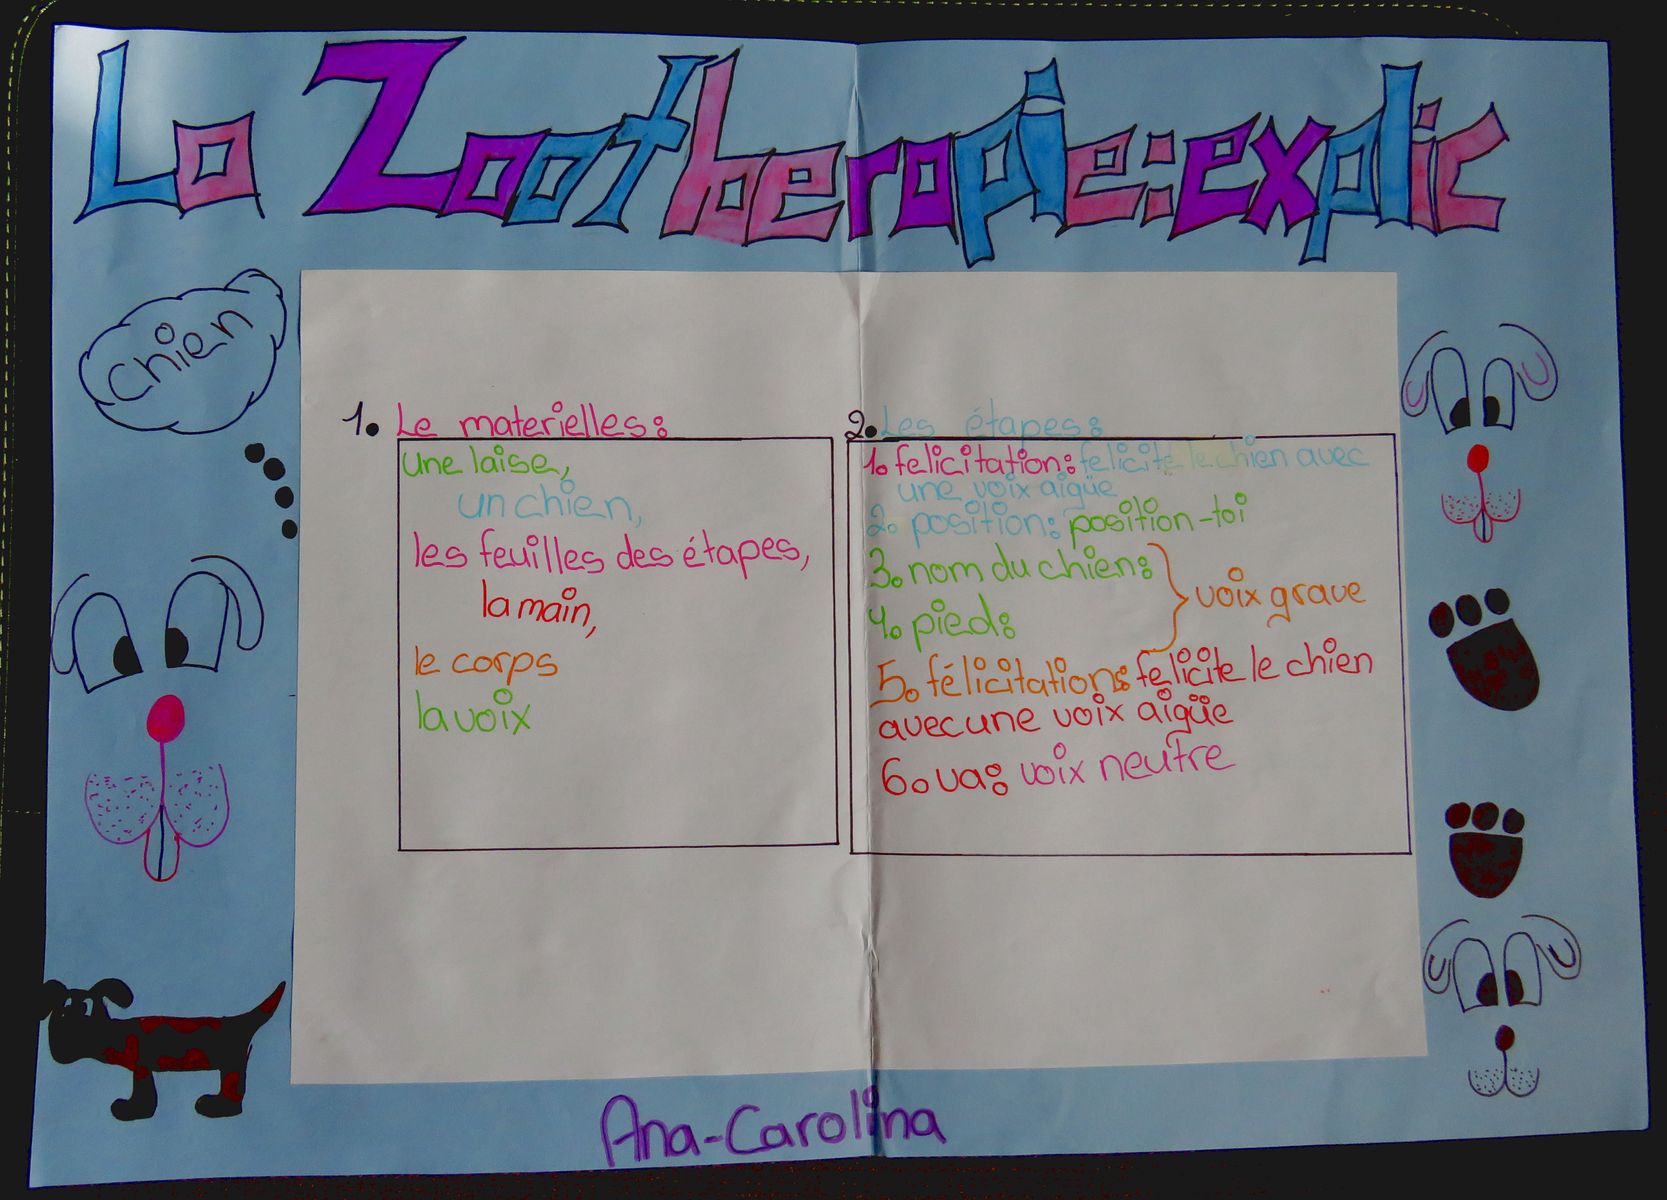 La Zootherapie:explic
chien
1. Le materielles:
une laise,
un chien,
les feuilles des étapes,
la main,
le corps
la voix
2. Les étapes:
1. felicitation: felicite le chien avec
une voix aigüe
2. position: position-toi
3. nom du chien:
4. pied:
voix grave
5. félicitation: felicite le chien
avec une voix aigüe
6. va: voix neutre
Ana-Carolina